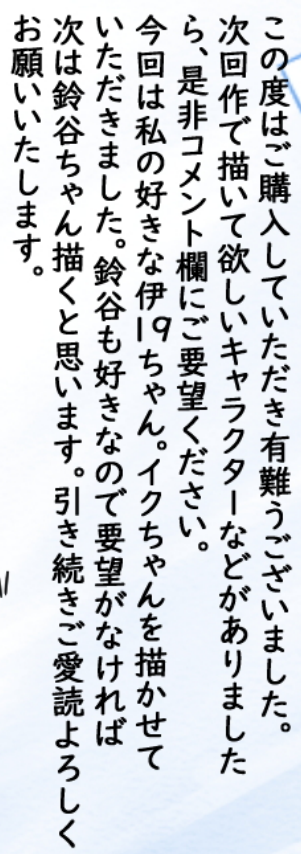 この度はご購入していただき有難うございました。
次回作で描いて欲しいキャラクターなどがありました
ら、是非コメント欄にご要望ください。
今回は私の好きな伊19ちゃん。イクちゃんを描かせて
いただきました。鈴谷も好きなので要望がなければ
次は鈴谷ちゃん描くと思います。引き続きご愛読よろしく
お願いいたします。